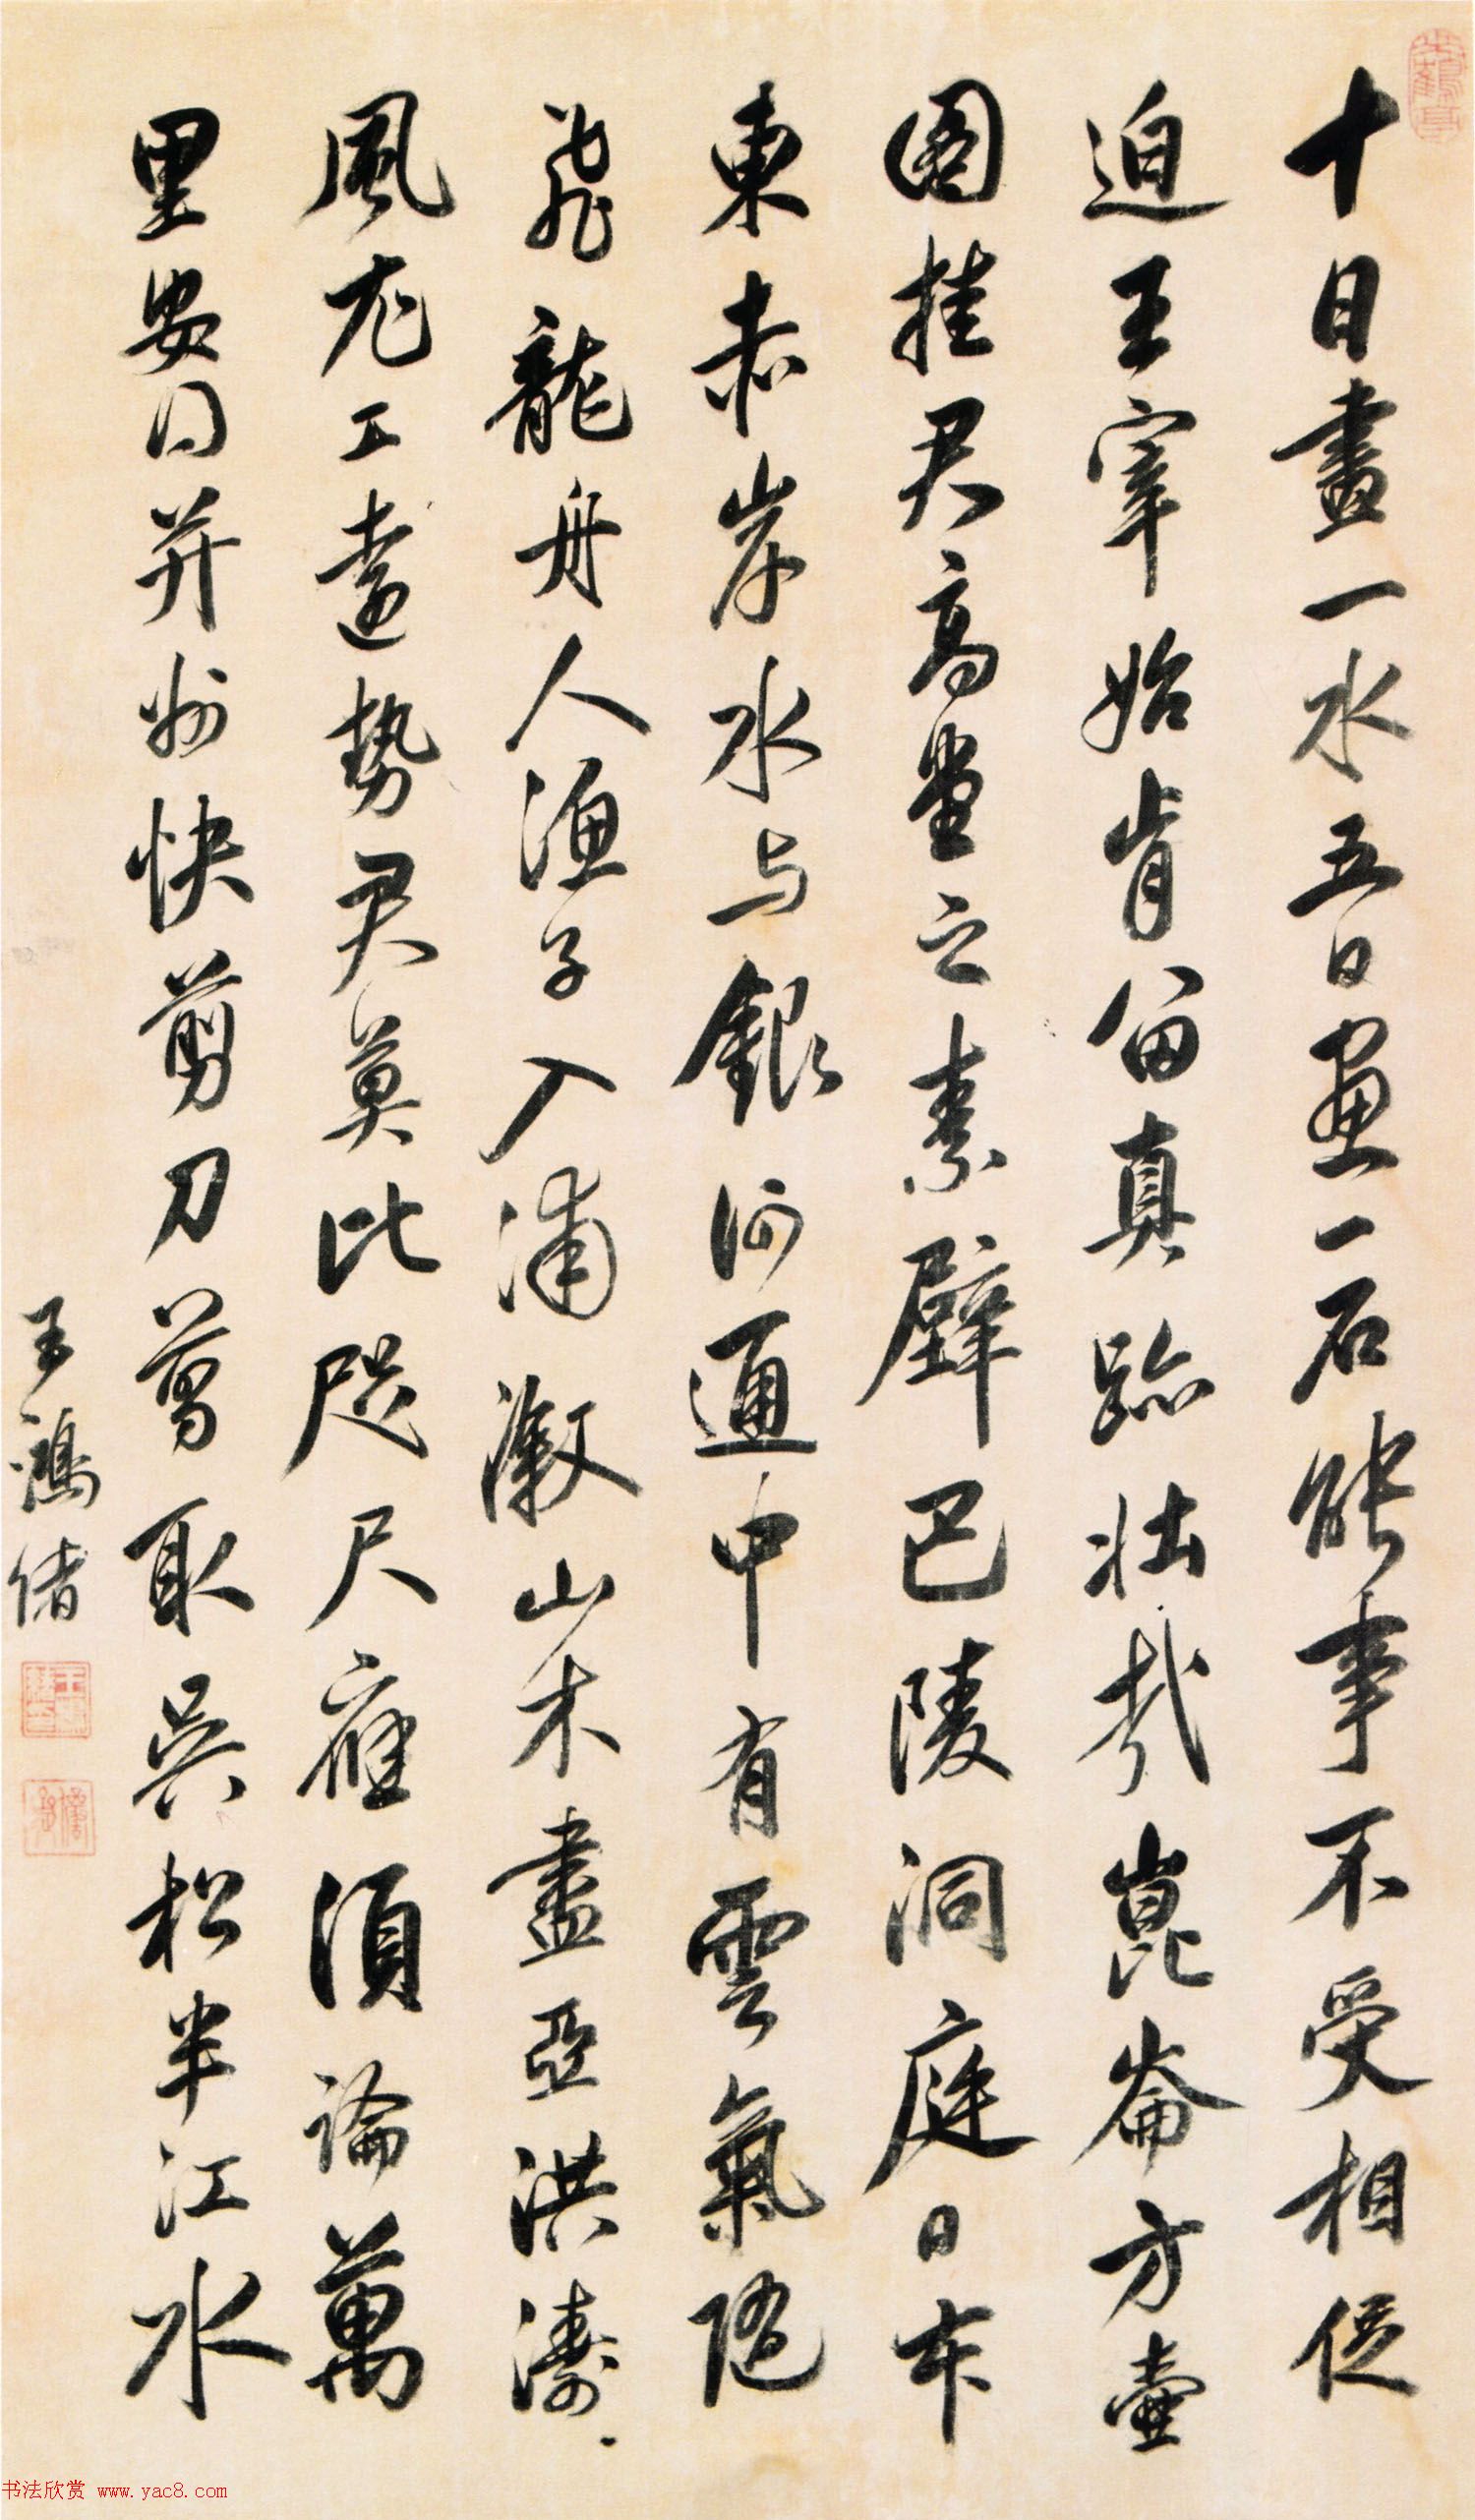 十日畫一水五日畫一石能事不受相促
迫王宰始肯留真跡壯哉崑崙方壺
圖挂君高堂之素壁巴陵洞庭日本
東赤岸水与銀河通中有雲氣隨
飛龍舟人漁子入浦漵山木盡亞洪濤
風尤工遠勢君莫比咫尺應須論萬
里安并州快剪刀剪取吳松半江水
王鴻緒
书法欣赏 www.yac8.com